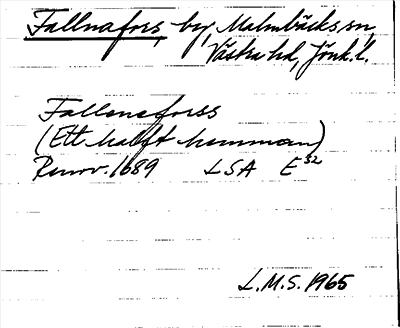 Fallnafors, by, Malmbäcks sn,
Västra hd, Jönk. l.
Fallenaforss
(Ett halft hemman)
Renov. 1689 LSA E32
L.M.S. 1965